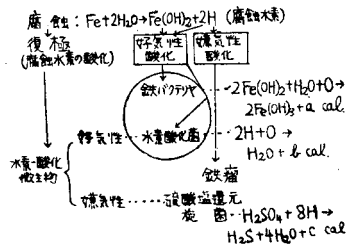 腐蝕：Fe+2H₂O→Fe(OH)₂+2H (腐蝕水素)
復極
(腐蝕水素の酸化)
好気性
酸化
嫌気性
酸化
鉄バクテリヤ
2Fe(OH)₂+H₂O+O→
2Fe(OH)₃+a cal.
好気性…水素酸化菌
2H+O→
H₂O+b cal.
水素-酸化
微生物
鉄瘤
嫌気性……硫酸塩還元
菌…H₂SO₄+8H→
H₂S+4H₂O+c cal